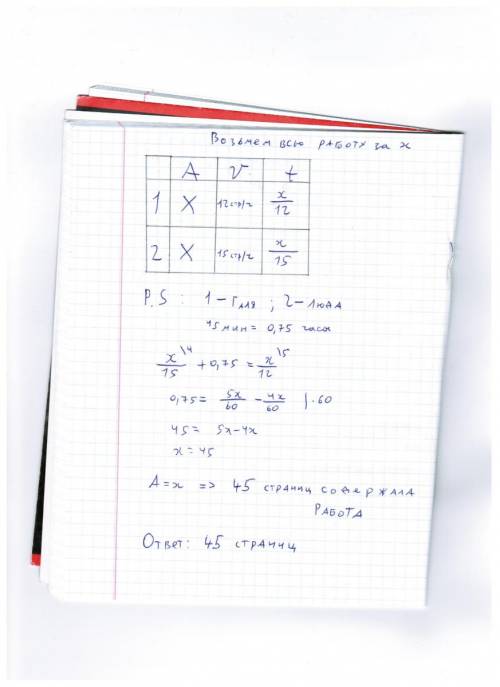 Возьмем всю работу за x
A V t
1 X 12стр/ч x/12
2 X 15стр/ч x/15
P.S : 1 – Галя ; 2 – Люда
45 мин = 0,75 часа
x/15 \4 + 0,75 = x/12 \5
0,75 = 5x/60 – 4x/60 | · 60
45 = 5x – 4x
x = 45
A = x => 45 страниц содержала
работа
Ответ: 45 страниц